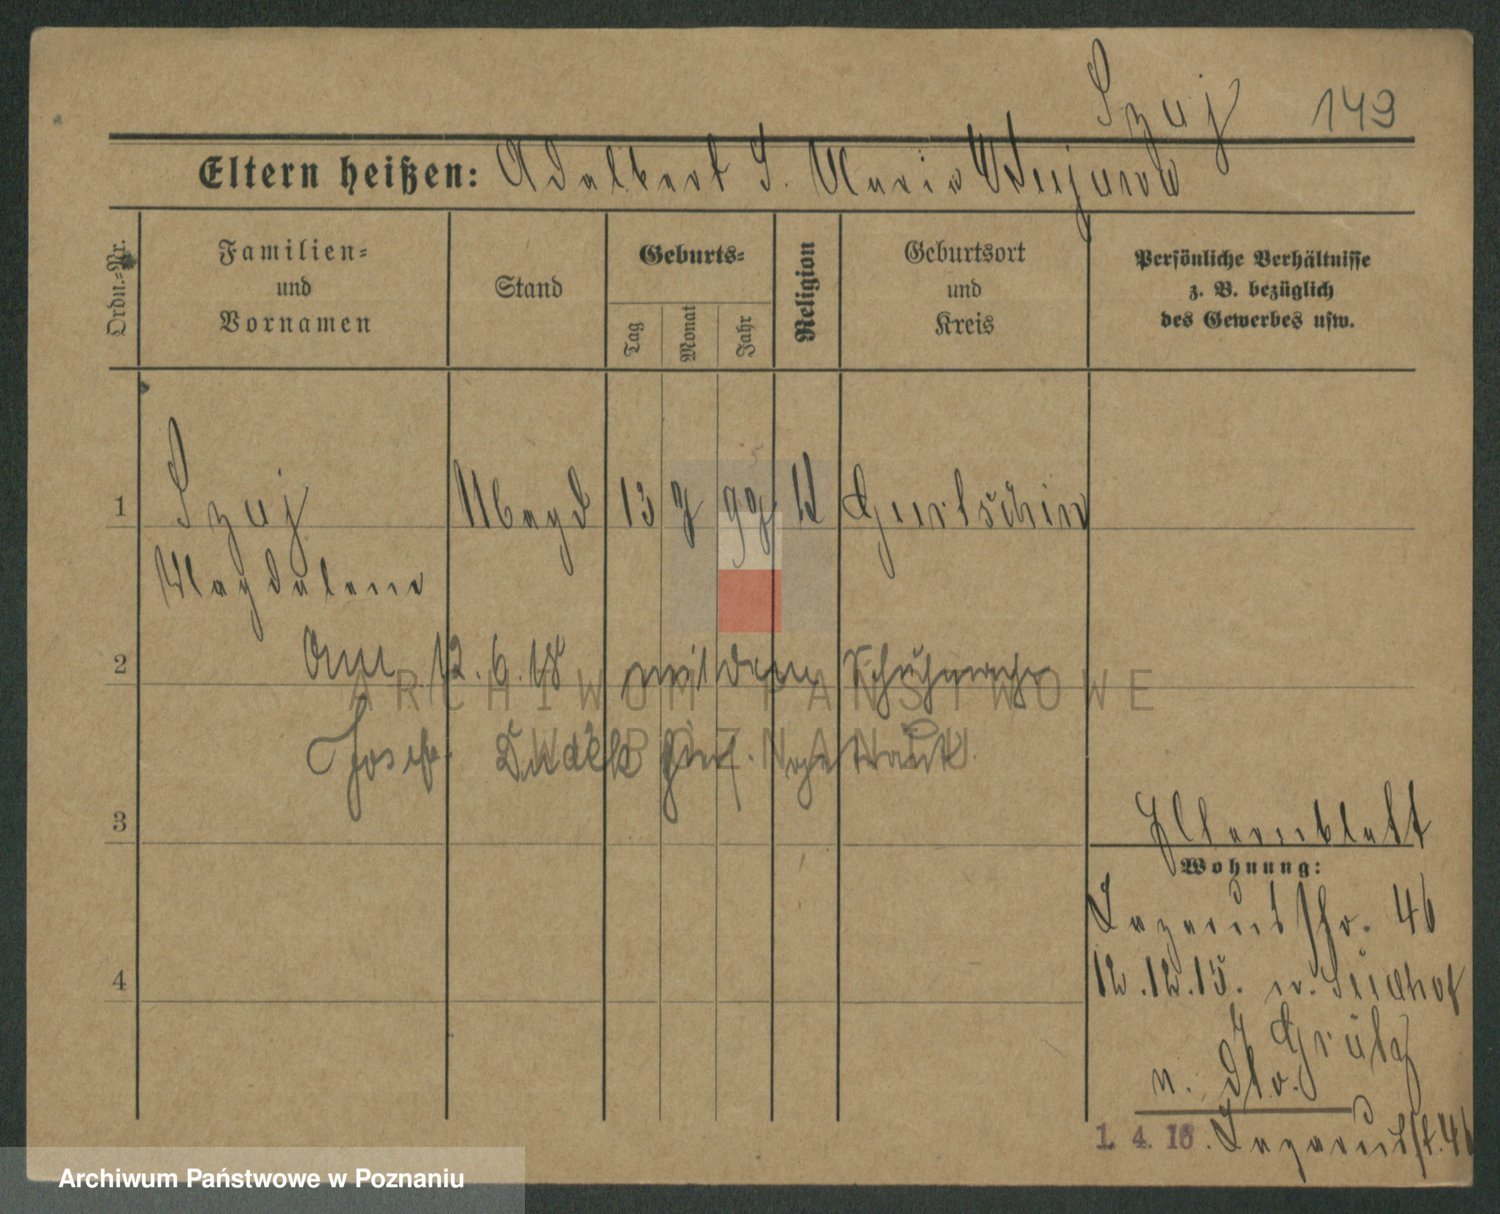 Szuj 149
Eltern heißen: Adalbert S. Maria
Ordn.-Nr.
Familien-
und
Vornamen
Stand
Geburts-
Tag
Monat
Jahr
Religion
Geburtsort
und
Kreis
Persönliche Verhältnisse
z. B. bezüglich
des Gewerbes usw.
1 Szuj Magd 13 7 97 K Gurtschin
Magdalena
2 Am 12.6.18 mit dem
Josef Dudek hier getraut.
3
Elternblatt
Wohnung:
Lazarusstr. 46
12.12.15. n.
4
Grätz
n.
1. 4. 16. Lazarusstr. 46
ARCHIWUM PAŃSTWOWE
W POZNANIU
Archiwum Państwowe w Poznaniu